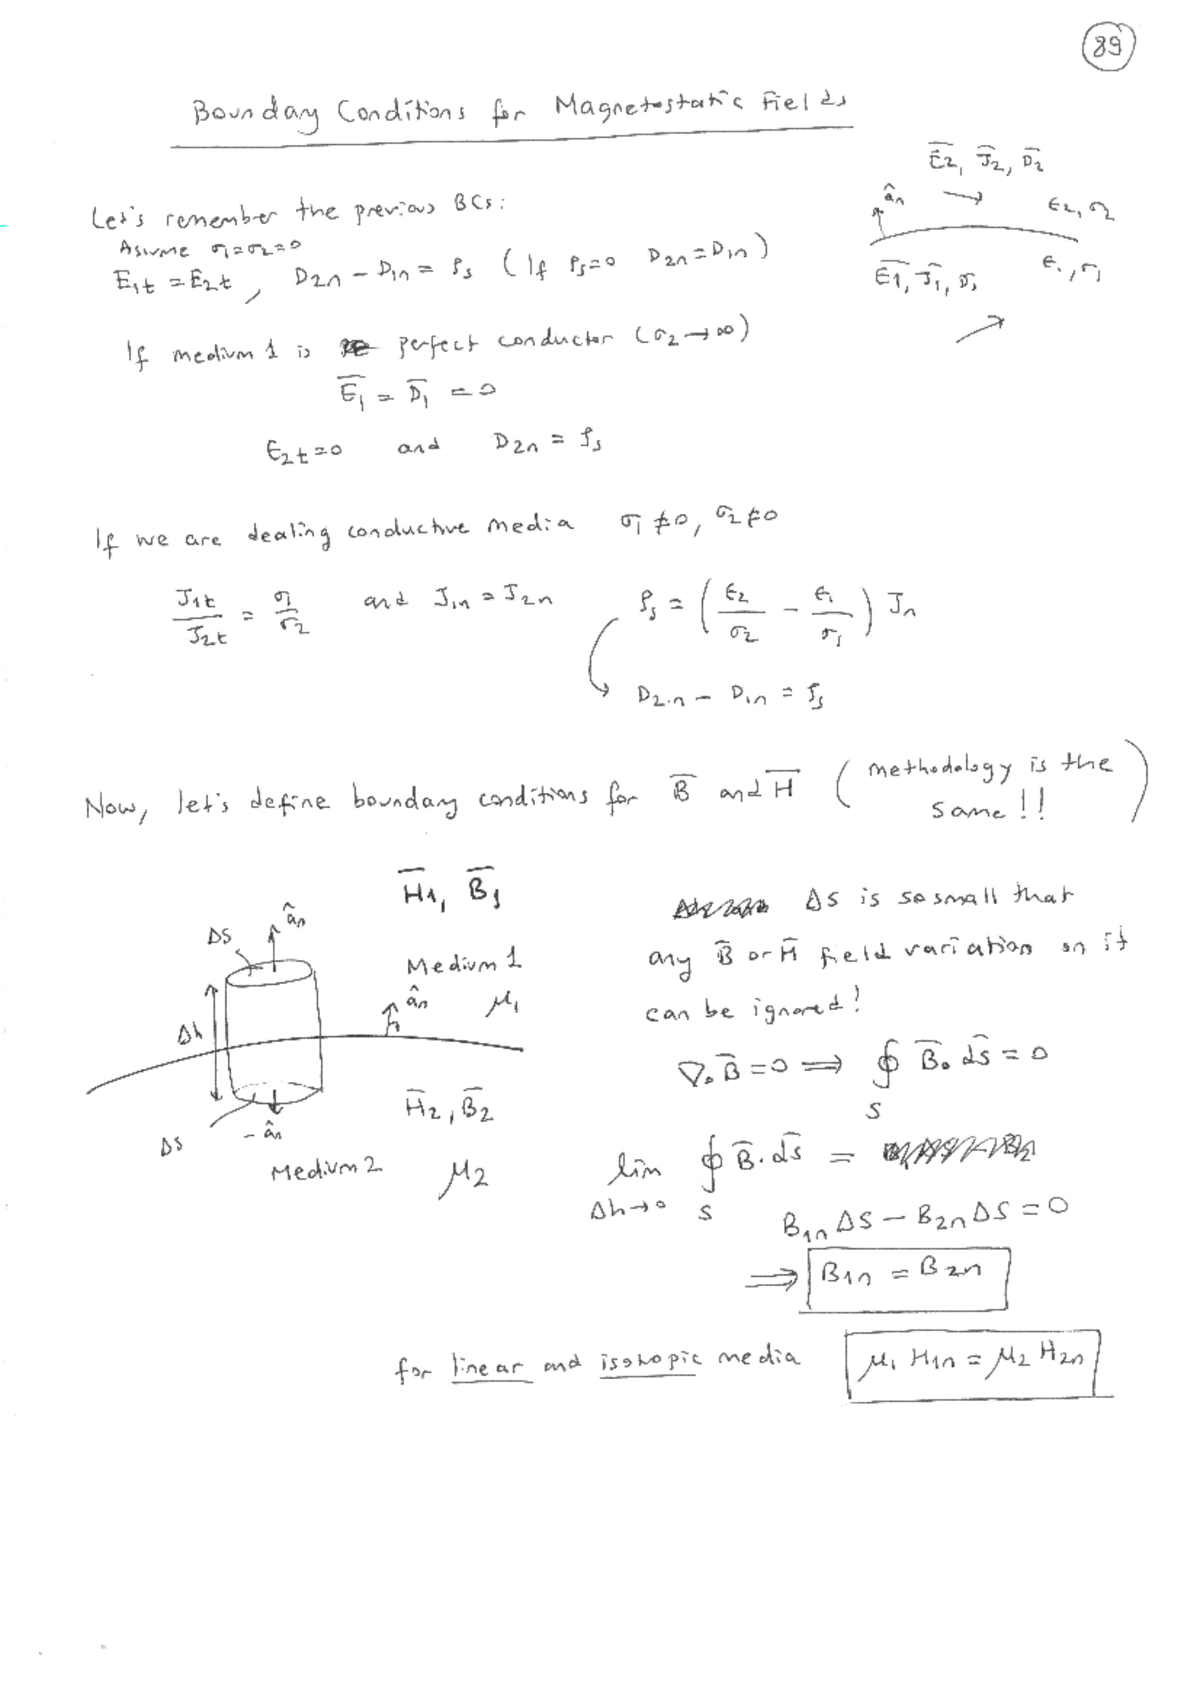 89
Boundary Conditions for Magnetostatic Fields
E̅2, J̅2, D̅2
ân
ε2, σ2
Let's remember the previous BCs:
Assume σ1=σ2=0
E1t = E2t, D2n − D1n = ρs (If ρs=0 D2n=D1n)
E̅1, J̅1,
ε1, σ1
If medium 1 is perfect conductor (σ2→∞)
E̅1 = D̅1 = 0
E2t=0 and D2n = ρs
If we are dealing conductive media σ1≠0, σ2≠0
J1t/J2t = σ1/σ2 and J1n = J2n ρs = (ε2/σ2 − ε1/σ1) Jn
D2n − D1n = ρs
Now, let's define boundary conditions for B̅ and H̅ (methodology is the
same!!)
H̅1, B̅1
ΔS is so small that
ân
ΔS
Medium 1
any B̅ or H̅ field variation on it
ân
μ1
can be ignored!
Δh
∇·B̅=0 ⟹ ∮S B̅·ds̅ = 0
H̅2, B̅2
−ân
ΔS
Medium 2 μ2
lim Δh→0 ∮S B̅·ds̅ =
B1n ΔS − B2n ΔS = 0
⟹ B1n = B2n
for linear and isotropic media μ1 H1n = μ2 H2n